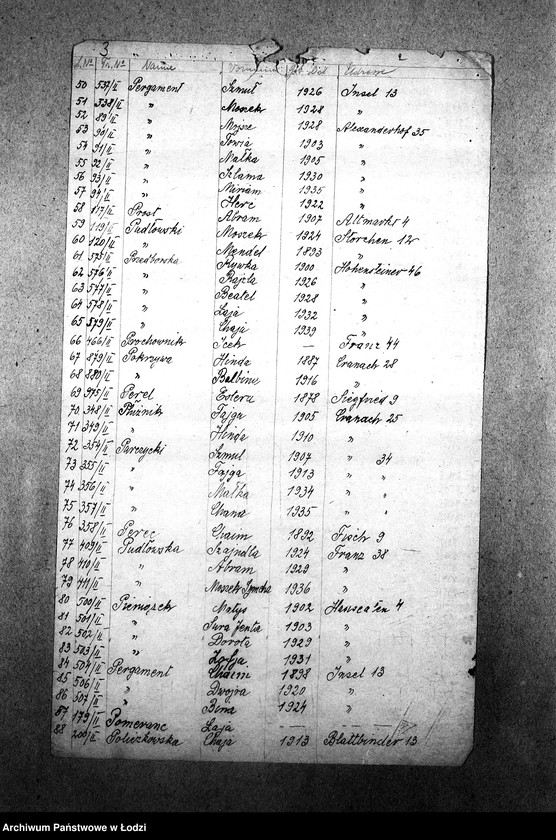 3
L.№ Tr.№ Name Vorname Geb. Adresse
50 537/II Pergament Szmul 1926 Insel 13
51 538/II " Moszek 1928 "
52 89/II " Mojsze 1928 Alexanderhof 35
53 90/II " Towia 1903 "
54 91/II " Małka 1905 "
55 92/II " Szlama 1930 "
56 93/II " Miriam 1935 "
57 94/II " Herc 1922 "
58 117/II Prost Abram 1907 Altmarkt 4
59 119/II Pudłowski Moszek 1924 Storchen 12
60 120/II " Mendel 1893 "
61 575/II Przedborska Rywka 1900 Hohensteiner 46
62 576/II " Rajzla 1926 "
63 577/II " Beatel 1928 "
64 578/II " Laja 1932 "
65 579/II " Chaja 1939 "
66 466/II Prochownik Icek — Franz 44
67 879/II Pokrzywa Hinda 1887 Cranach 28
68 880/II " Balbina 1916 "
69 975/II Perel Estera 1878 Siegfried 9
70 348/II Płuźnik Fajga 1905 Cranach 25
71 349/II " Hinda 1910 "
72 354/II Parzycki Szmul 1907 " 34
73 355/II " Fajga 1913 " "
74 356/II " Małka 1934 " "
75 357/II " Chana 1935 " "
76 358/II Perec Chaim 1892 Fisch 9
77 409/II Pudłowska Szajndla 1924 Franz 38
78 410/II " Abram 1929 "
79 411/II " Moszek Symcha 1936 "
80 500/II Pieniążek Matys 1902 Hanseaten 4
81 501/II " Sura Jenta 1903 "
82 502/II " Dorota 1929 "
83 503/II " Zofja 1931 "
84 504/II Pergament Chaim 1898 Insel 13
85 506/II " Dwojra 1920 "
86 507/II " Bina 1924 "
87 179/II Pomeranc Laja — —
88 200/II Policzkowska Chaja 1913 Blattbinder 13
Archiwum Państwowe w Łodzi